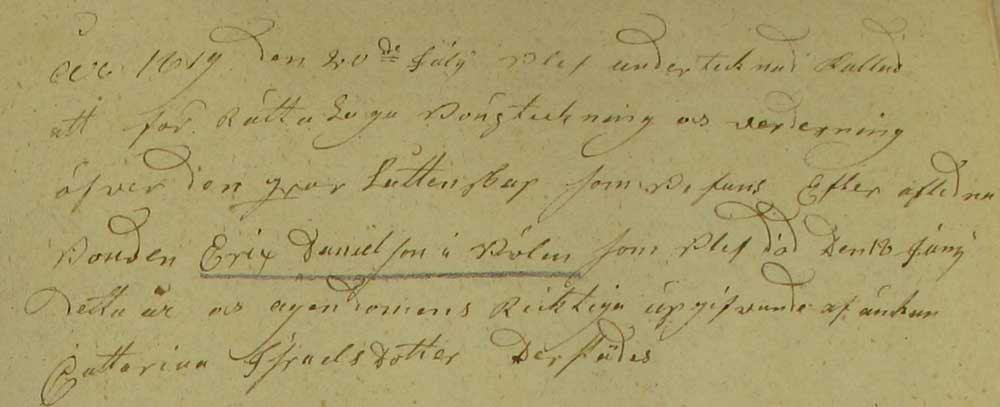 År 1819 den 20de Júlÿ Blef underteknad Kallad
att för Rätta Laga Boúpteckning os verderning
öfver den qvar Låttenskap som Befans Efter afledna
Bonden Erix Danielson i Bölen som Blef död Den 18 Júnÿ
Detta år os egendomens Ricktiga úpgifvande af änkan
Cattarina Isralsdotter Dersädes